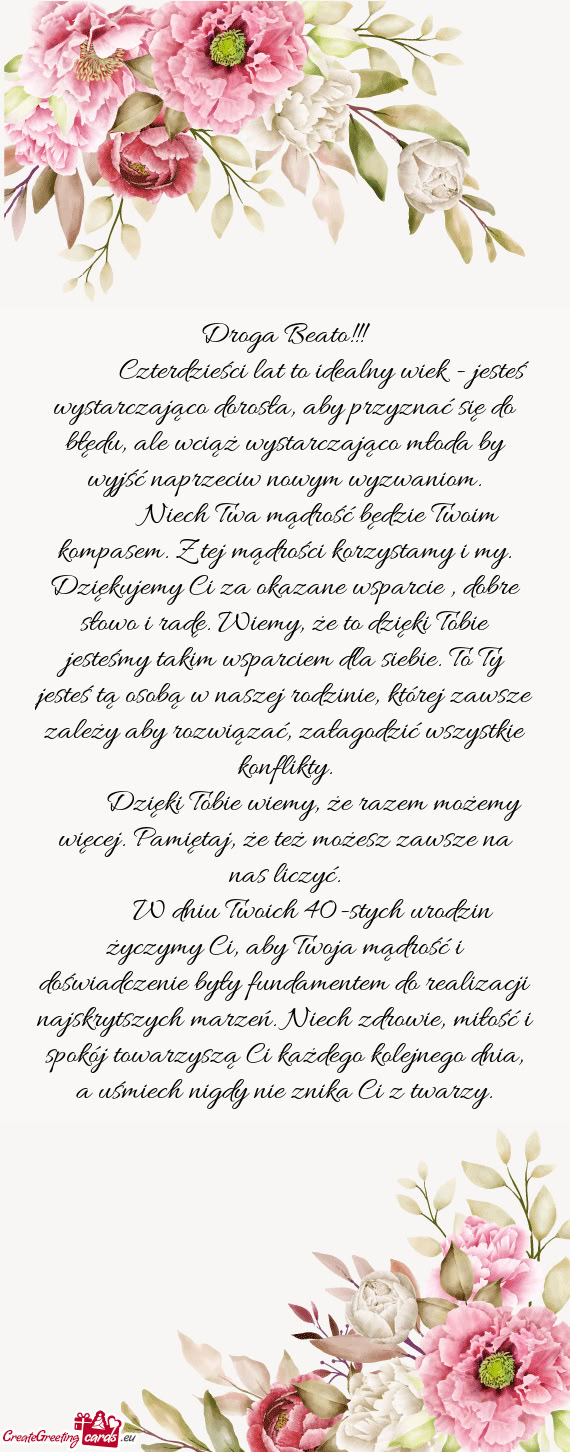 Droga Beato!!!
Czterdzieści lat to idealny wiek - jesteś
wystarczająco dorosła, aby przyznać się do
błędu, ale wciąż wystarczająco młoda by
wyjść naprzeciw nowym wyzwaniom.
Niech Twa mądrość będzie Twoim
kompasem. Z tej mądrości korzystamy i my.
Dziękujemy Ci za okazane wsparcie , dobre
słowo i radę. Wiemy, że to dzięki Tobie
jesteśmy takim wsparciem dla siebie. To Ty
jesteś tą osobą w naszej rodzinie, której zawsze
zależy aby rozwiązać, załagodzić wszystkie
konflikty.
Dzięki Tobie wiemy, że razem możemy
więcej. Pamiętaj, że też możesz zawsze na
nas liczyć.
W dniu Twoich 40-stych urodzin
życzymy Ci, aby Twoja mądrość i
doświadczenie były fundamentem do realizacji
najskrytszych marzeń. Niech zdrowie, miłość i
spokój towarzyszą Ci każdego kolejnego dnia,
a uśmiech nigdy nie znika Ci z twarzy.
CreateGreeting cards .eu